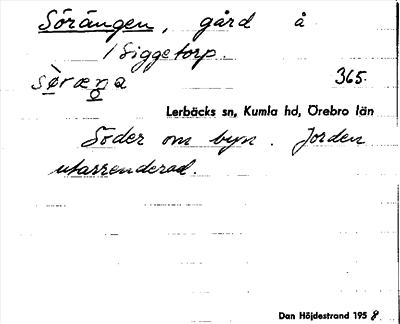 Sörängen, gård å
/ Siggetorp.
365.
Lerbäcks sn, Kumla hd, Örebro län
Söder om byn. Jorden
utarrenderad.
Dan Höjdestrand 1958